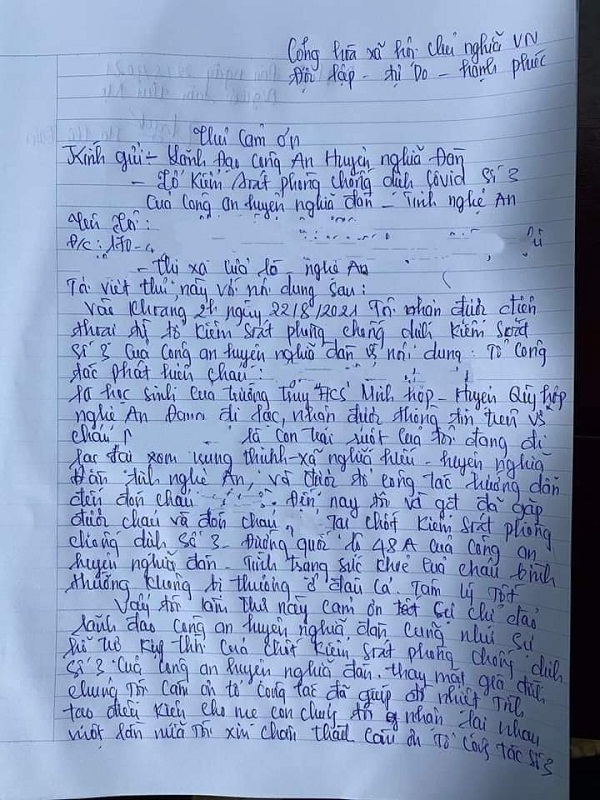 Cộng hòa xã hội chủ nghĩa VN
Độc lập - tự Do - hạnh phúc
Thư cảm ơn
Kính gửi - Lãnh Đạo Công An Huyện nghĩa Đàn
- Tổ Kiểm soát phòng chống dịch covid Số 3
Của Công an huyện nghĩa đàn - Tỉnh nghệ An
Tên tôi:
Đ/C: 170-
- Thị xã cửa lò, nghệ An
Tôi viết thư này với nội dung sau:
Vào khoảng 2h ngày 22/8/2021 Tôi nhận được điện
thoại từ tổ kiểm soát phòng chống dịch kiểm soát
Số 3 của công an huyện nghĩa đàn về nội dung: Tổ công
tác phát hiện cháu:
là học sinh của trường THCS Minh hợp - Huyện Quỳ hợp
nghệ An Đang đi lạc, nhận được thông tin trên về
cháu là con trai ruột của tôi đang đi
lạc tại xóm hưng thịnh - xã nghĩa hiếu - huyện nghĩa
Đàn tỉnh nghệ An, và được tổ công tác hướng dẫn
đến đón cháu Đến nay tôi và gđ đã gặp
được cháu và đón cháu, Tại chốt kiểm soát phòng
chống dịch số 3 - Đường quốc lộ 48A của công an
huyện nghĩa đàn - Tình trạng sức khỏe của cháu bình
thường không bị thương ở đâu cả. Tâm lý Tốt
Vậy tôi làm thư này cảm ơn tới sự chỉ đạo
lãnh đạo công an huyện nghĩa đàn cũng như sự
kịp thời của chốt kiểm soát phòng chống dịch
Số 3 của công an huyện nghĩa đàn. thay mặt gia đình
chúng Tôi cảm ơn tổ công tác đã giúp đỡ nhiệt tình
tạo điều kiện cho mẹ con chúng tôi nhận lại nhau
lần nữa Tôi xin chân thành cảm ơn Tổ công tác số 3